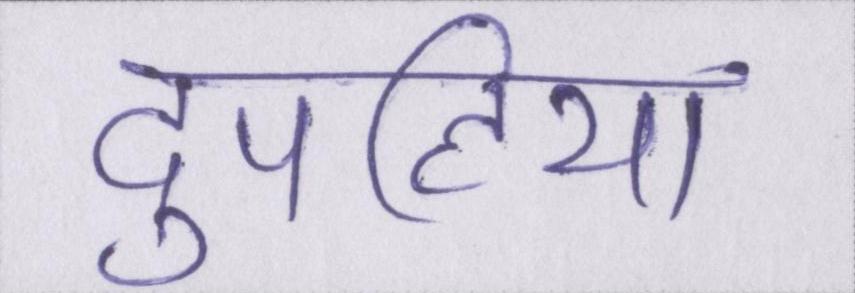 दुपहिया